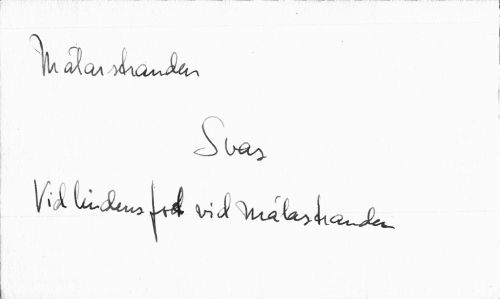 Mälarstranden
Svas
Vid lindens fot vid Mälastranden